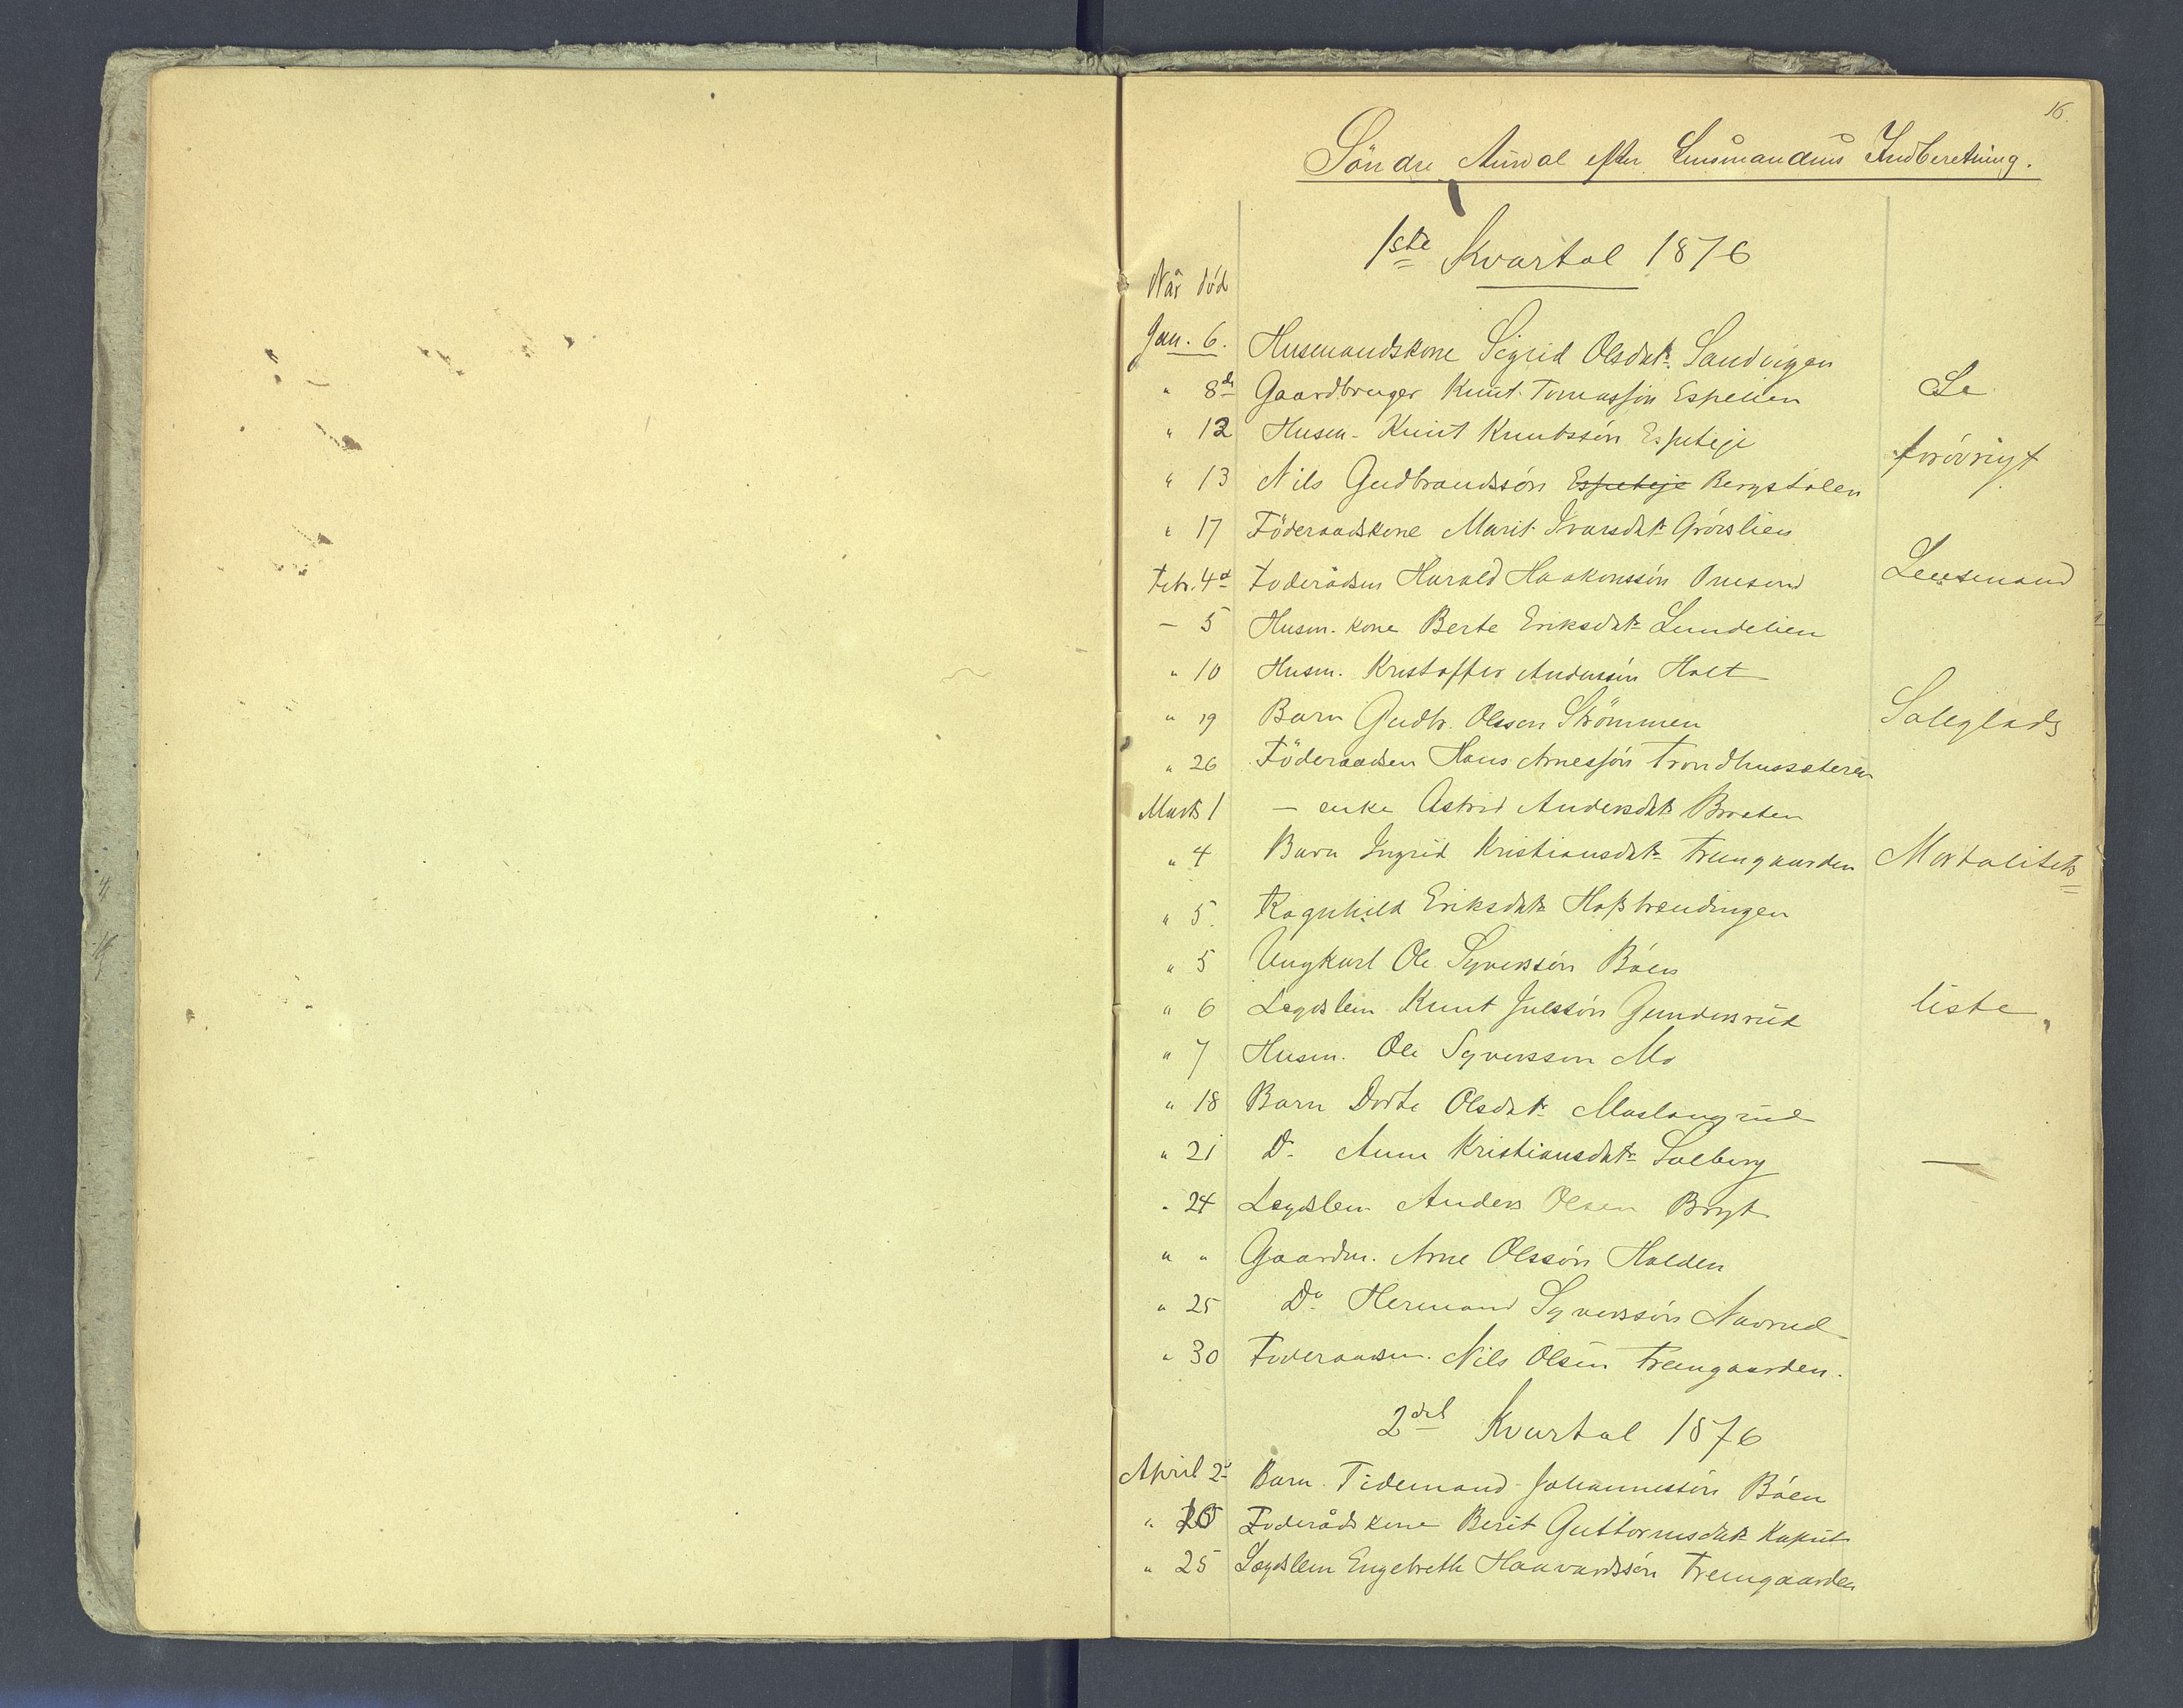 16.
Söndre Aurdal efter Lensmandens Indberetning.
1ste Kvartal 1876
Når död
Jan. 6. Husmandskone Sigrid Olsdatr Sandvigen
" 8de Gaardbruger Knut Tomassön Espelien
Se
" 12 Husm. Knut Knutssön Espeteje
forövrigt
" 13 Nils Gudbrandssön Espeteje Bergstölen
" 17 Föderaadskone Marit Ivarsdatr Grövslien
Febr. 4d Föderådsm Harald Haakonssön
Lensmand
– 5 Husm. kone Berte Eriksdatr Lundelien
" 10 Husm. Kristoffer Anderssön Holt
" 19 Barn Gudbr. Olsson Strömmen
Soleglads
" 26 Föderaadsm Hans Arnessön Trondhussæteren
Marts 1 – enke Astrid Andersdatr Braaten
" 4 Barn Ingrid Kristiansdatr Fremgaarden
Mortalitets=
" 5. Ragnhild Eriksdatr
" 5 Ungkarl Ole Syverssön Böen
" 6 Lægdslem Knut Julssön Gundersrud
liste
" 7 Husm. Ole Syversson Mo
" 18 Barn Dorte Olsdatr Maslangrud
" 21 Do Anne Kristiansdatr Solberg
—
" 24 Lægdslem Anders Olsen
" " Gaardm. Arne Olssön Halden
" 25 Do Hermand Syverssön Navrud
" 30 Föderaadsm. Nils Olsen Fremgaarden.
2det Kvartal 1876
April 2d Barn Tidemand Johannessön Böen
" 20 Föderåds kone Berit Guttormsdatr
" 25 Lægdslem Engebreth Haavardssön Fremgaarden